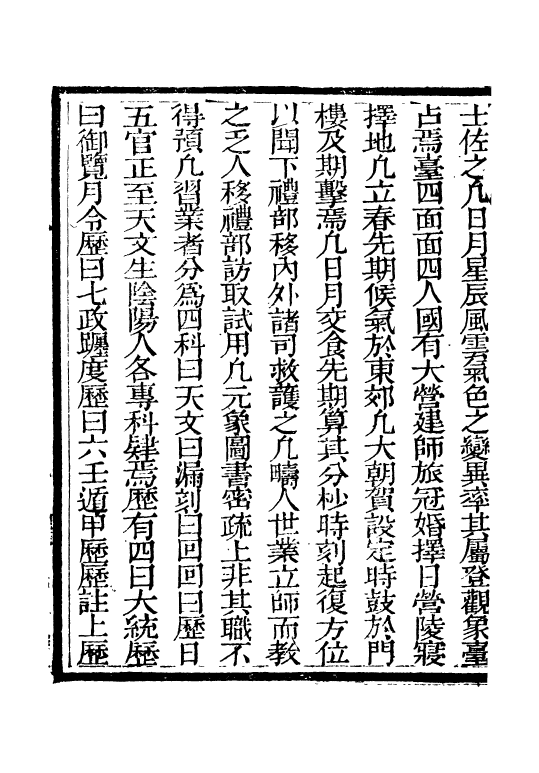 士佐之凢日月星辰風雲氣色之變異率其屬登觀象臺
占焉臺四面面四人國有大營建師旅冠婚擇日營陵寢
擇地凢立春先期候氣於東郊凢大朝賀設定時鼓於門
樓及期擊焉凢日月交食先期算其分杪時刻起復方位
以聞下禮部移內外諸司救護之凢疇人世業立師而教
之乏人移禮部訪取試用凢元象圖書密疏上非其職不
得預凢習業者分爲四科曰天文曰漏刻曰回回曰歷日
五官正至天文生陰陽人各專科肄焉歷有四曰大統歷
曰御覽月令歷曰七政躔度歷曰六壬遁甲歷歷註上歷